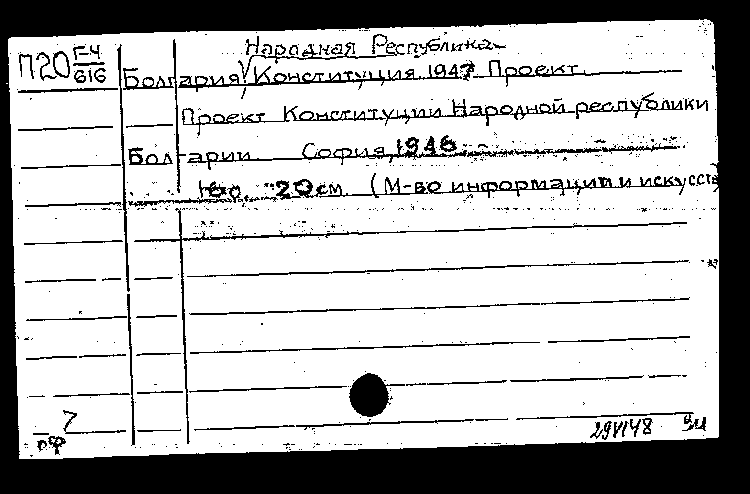 Народная Республика
П20 Г-4/616
Болгария, Конституция 1947 Проект.
Проект Конституции Народной республики
Болгарии София, 1946.
20 см. (М-во информации и искусств)
7
29VI48